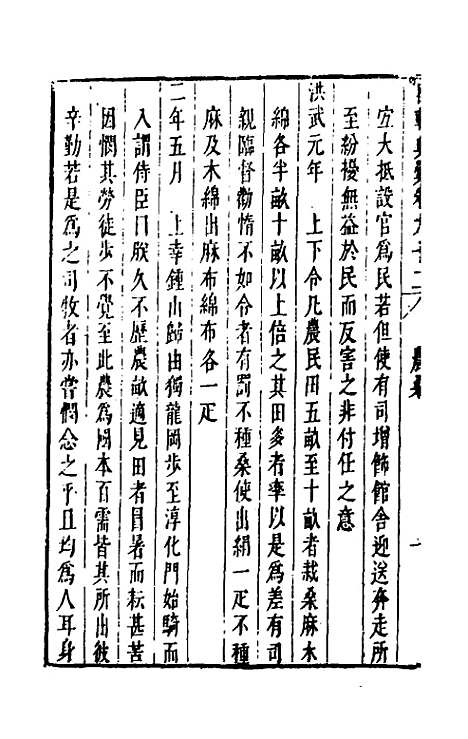 農桑
一
宜大抵設官爲民若但使有司增飾館舍迎送奔走所
至紛擾無益於民而反害之非付任之意
洪武元年 上下令凡農民田五畝至十畝者栽桑麻木
綿各半畝十畝以上倍之其田多者率以是爲差有司
親臨督勸惰不如令者有罰不種桑使出絹一疋不種
麻及木綿出麻布綿布各一疋
二年五月 上幸鍾山歸由獨龍岡步至淳化門始騎而
入謂侍臣曰朕久不歷農畝適見田者冒暑而耘甚苦
因憫其勞徒步不覺至此農爲國本百需皆其所出彼
辛勤若是爲之司牧者亦嘗憫念之乎且均爲人耳身